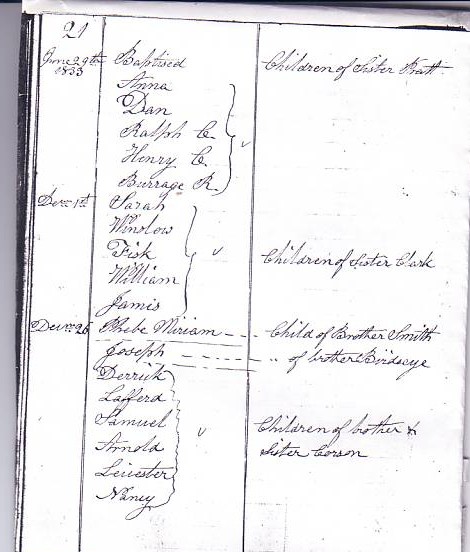 21
June 29th Baptised Children of Sister Pratt
1833 Anna
Dan
Ralph C.
Henry C.
Burrage R.
Dec 1st Sarah
Winslow
Fisk Children of Sister Clark
William
Jamis
Dec 26 Phebe Miriam Child of Brother Smith
Joseph " of brother Birdseye
Derrick
Lafferd
Samuel Children of brother &
Arnold Sister Corson
Leicester
Nancy